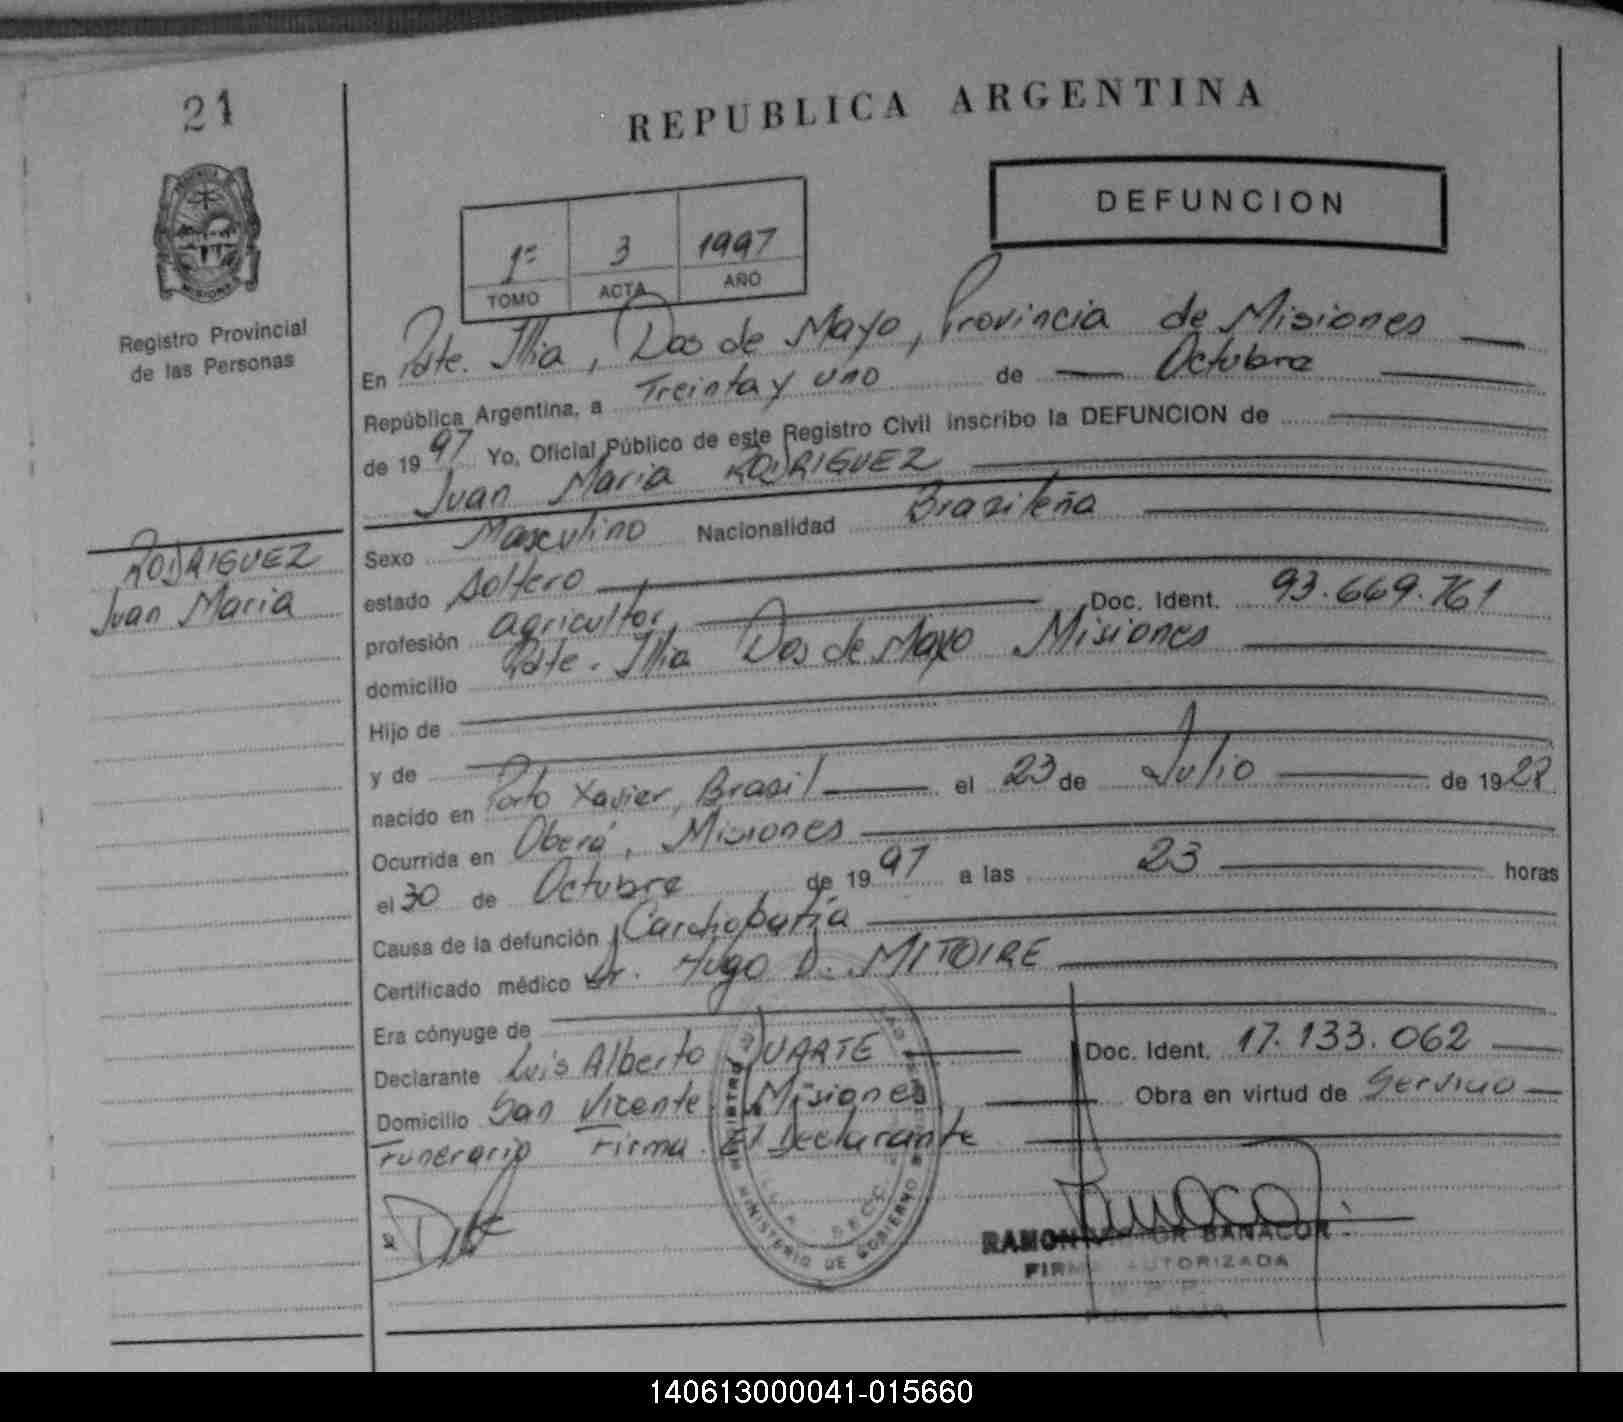 21
REPUBLICA ARGENTINA
DEFUNCION
1º 3 1997
TOMO ACTA AÑO
Registro Provincial
de las Personas
En Pdte. Illia, Dos de Mayo, Provincia de Misiones
República Argentina, a Treinta y uno de Octubre
de 1997 Yo, Oficial Público de este Registro Civil inscribo la DEFUNCION de
Juan Maria RODRIGUEZ
RODRIGUEZ
Juan Maria
Sexo Masculino Nacionalidad Brasileña
estado Soltero
profesión agricultor Doc. Ident. 93.669.761
domicilio Pdte. Illia Dos de Mayo Misiones
Hijo de
y de
nacido en Porto Xavier, Brasil el 23 de Julio de 1928
Ocurrida en Oberá, Misiones
el 30 de Octubre de 1997 a las 23 horas
Causa de la defunción Cardiopatía
Certificado médico Dr. Hugo D. MITOIRE
Era cónyuge de
Declarante Luis Alberto DUARTE Doc. Ident. 17.133.062
Domicilio San Vicente, Misiones Obra en virtud de Servicio
Funerario Firma El Declarante
MINISTERIO DE GOBIERNO
RAMON BANACOR
FIRMA AUTORIZADA
140613000041-015660